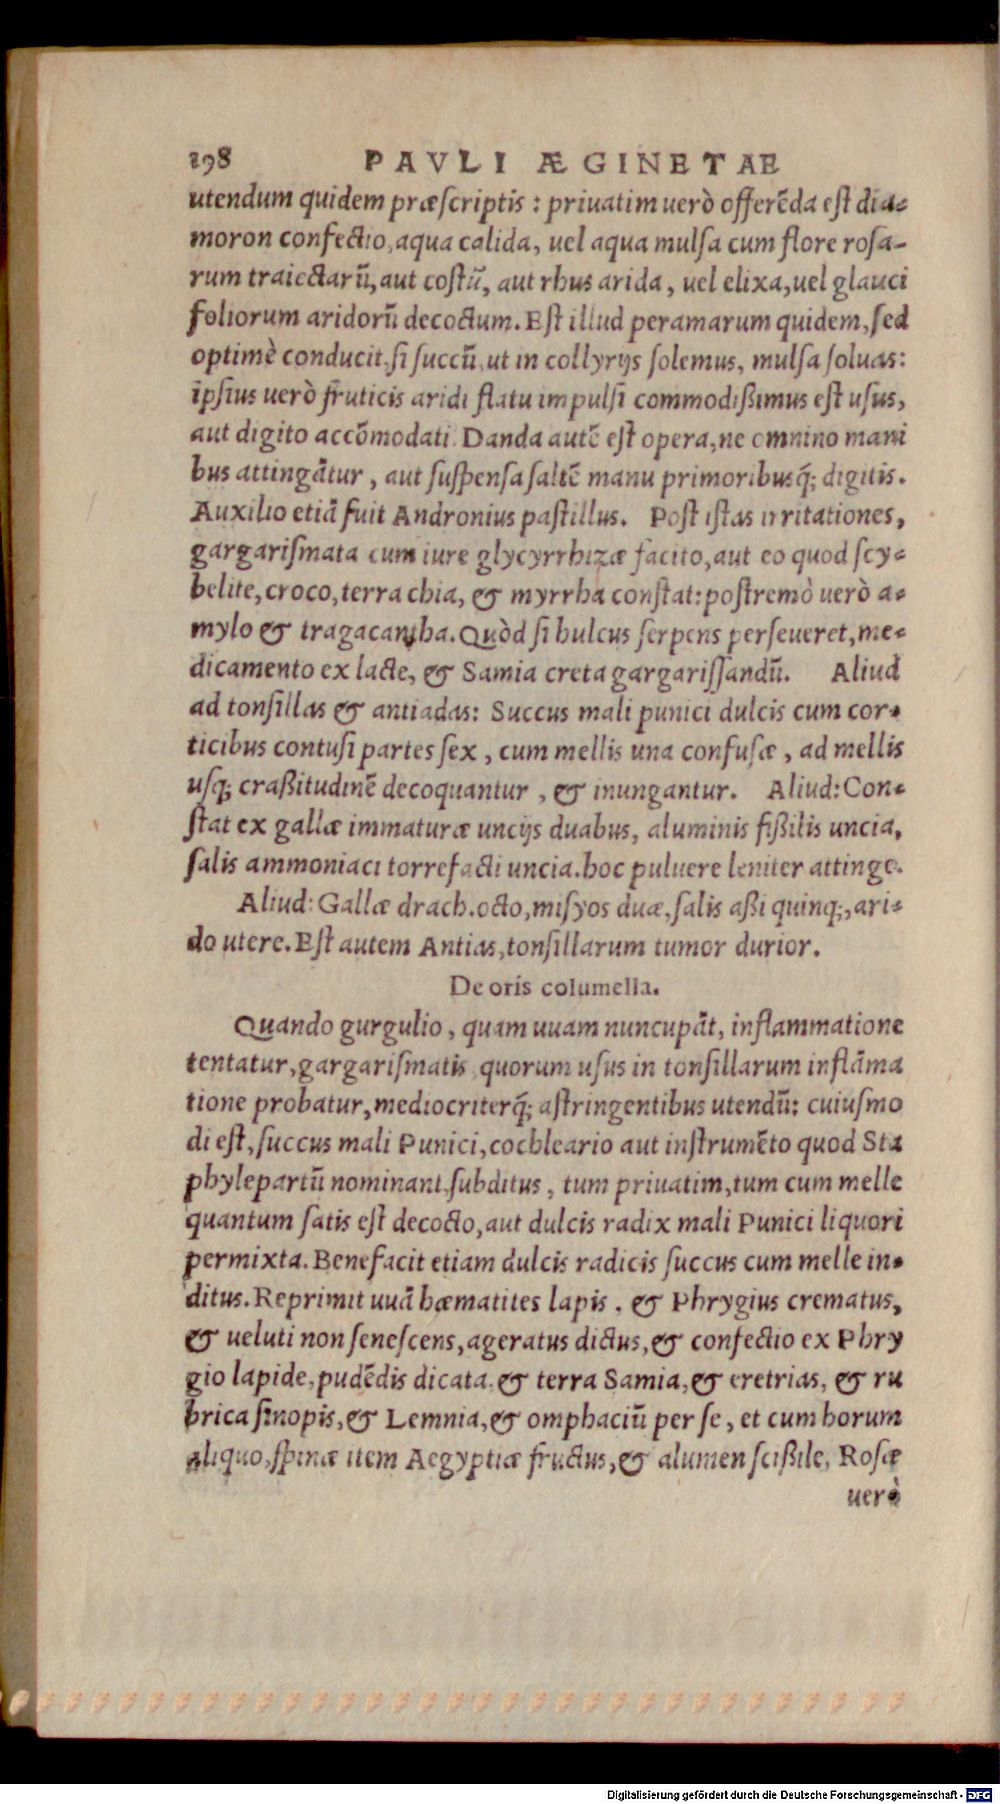 198 PAVLI ÆGINETAE
utendum quidem præſcriptis : priuatim uerò offerẽda eſt dia-
moron confectio, aqua calida, uel aqua mulſa cum flore roſa-
rum traiectarũ, aut coſtũ, aut rhus arida, uel elixa, uel glauci
foliorum aridorũ decoctum. Eſt illud peramarum quidem, ſed
optimè conducit, ſi ſuccũ, ut in collyrijs ſolemus, mulſa ſoluas:
ipſius uerò fruticis aridi flatu impulſi commodißimus eſt uſus,
aut digito accõmodati. Danda autẽ eſt opera, ne omnino mani
bus attingãtur, aut ſuſpenſa ſaltẽ manu primoribusq́; digitis.
Auxilio etiã fuit Andronius paſtillus. Poſt iſtas irritationes,
gargariſmata cum iure glycyrrhizæ facito, aut eo quod ſcy-
belite, croco, terra chia, & myrrha conſtat: poſtremò uerò a-
mylo & tragacantha. Quòd ſi hulcus ſerpens perſeueret, me-
dicamento ex lacte, & Samia creta gargariſſandũ. Aliud
ad tonſillas & antiadas: Succus mali punici dulcis cum cor-
ticibus contuſi partes ſex, cum mellis una confuſæ, ad mellis
uſq; craßitudinẽ decoquantur, & inungantur. Aliud: Con-
ſtat ex gallæ immaturæ uncijs duabus, aluminis fißilis uncia,
ſalis ammoniaci torrefacti uncia. hoc puluere leniter attinge.
Aliud: Gallæ drach. octo, miſyos duæ, ſalis aßi quinq;, ari-
do utere. Eſt autem Antias, tonſillarum tumor durior.
De oris columella.
Quando gurgulio, quam uuam nuncupãt, inflammatione
tentatur, gargariſmatis quorum uſus in tonſillarum inflãma
tione probatur, mediocriterq́; aſtringentibus utendũ: cuiuſmo
di eſt, ſuccus mali Punici, cochleario aut inſtrumẽto quod Sta
phylepartũ nominant, ſubditus, tum priuatim, tum cum melle
quantum ſatis eſt decocto, aut dulcis radix mali Punici liquori
permixta. Benefacit etiam dulcis radicis ſuccus cum melle in-
ditus. Reprimit uuã hæmatites lapis. & Phrygius crematus,
& ueluti non ſeneſcens, ageratus dictus, & confectio ex Phry
gio lapide, pudẽdis dicata, & terra Samia, & eretrias, & ru
brica ſinopis, & Lemnia, & omphaciũ per ſe, et cum horum
aliquo, ſpinæ item Aegyptiæ fructus, & alumen ſcißile, Roſæ
uerò
Digitalisierung gefördert durch die Deutsche Forschungsgemeinschaft - DFG